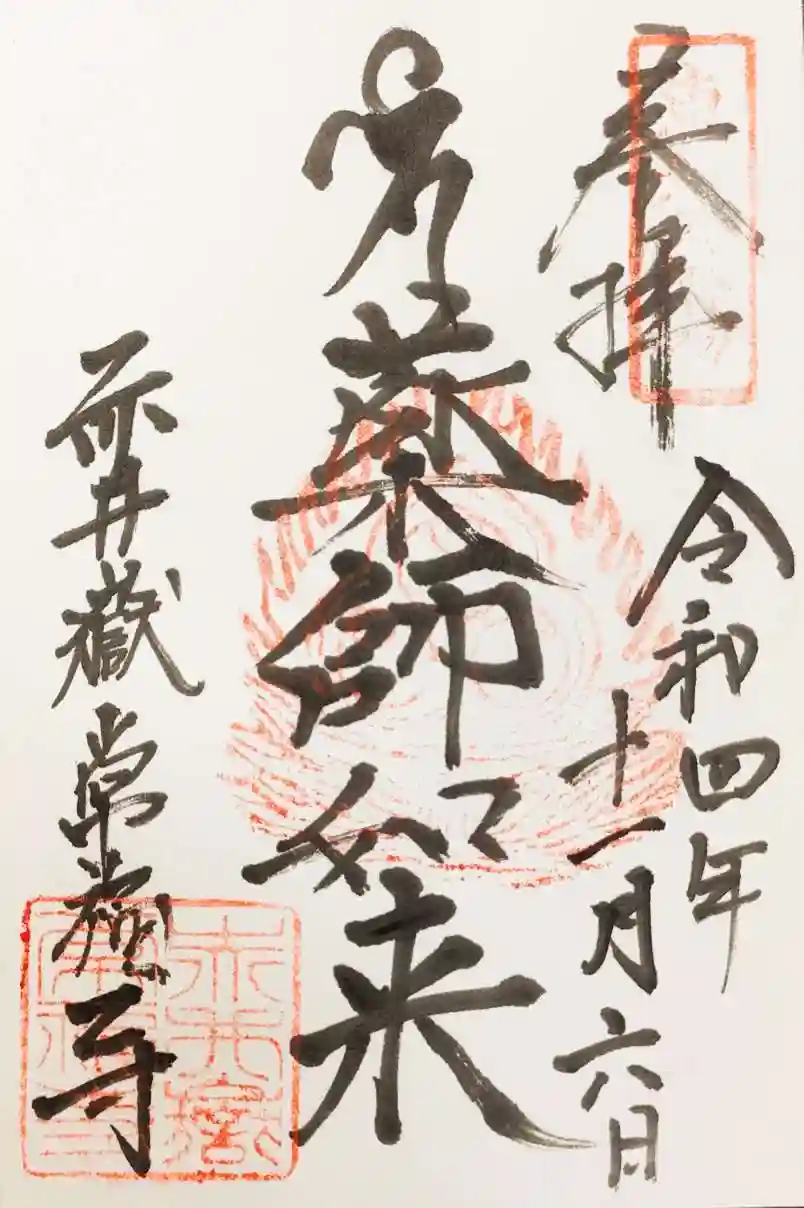 奉拝
令和四年
十一月六日
薬師如来
赤井嶽常福寺